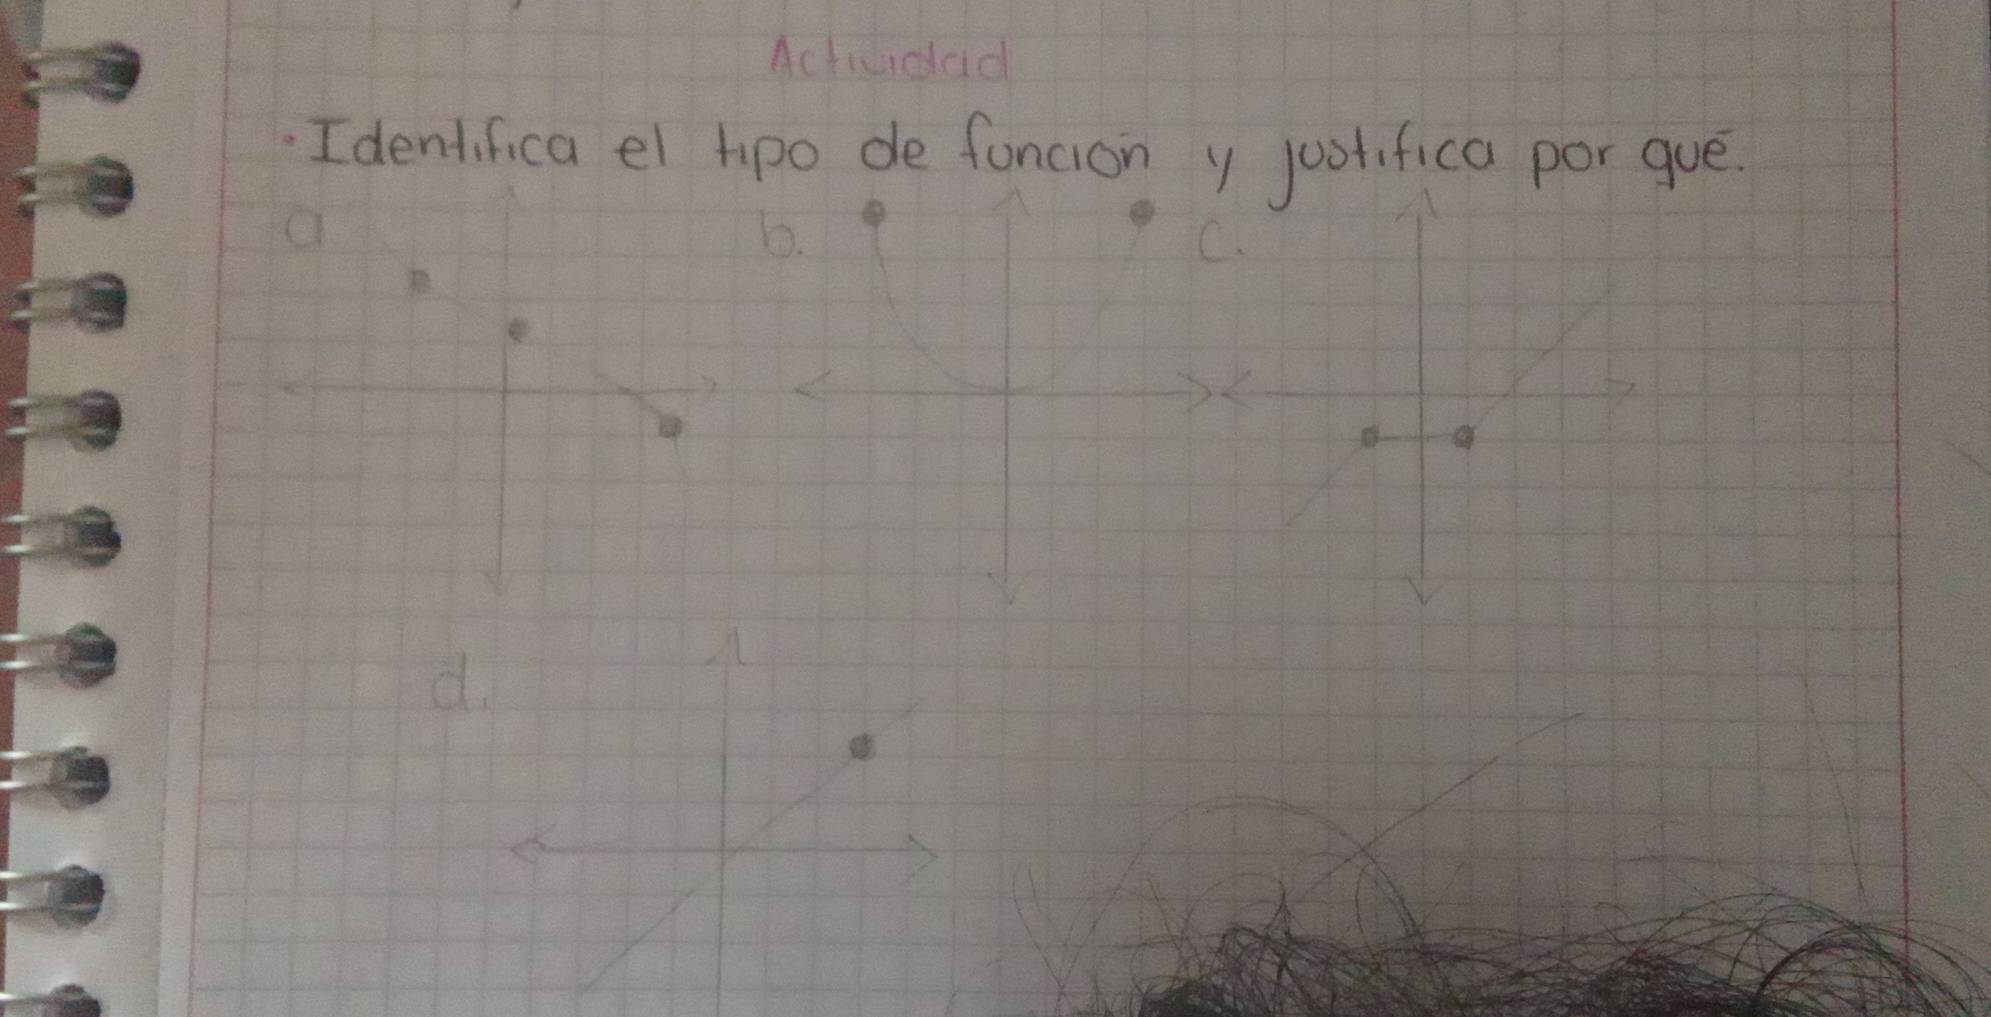 Actividad
· Identifica el tipo de función y justifica por qué.
a
b.
c.
d.